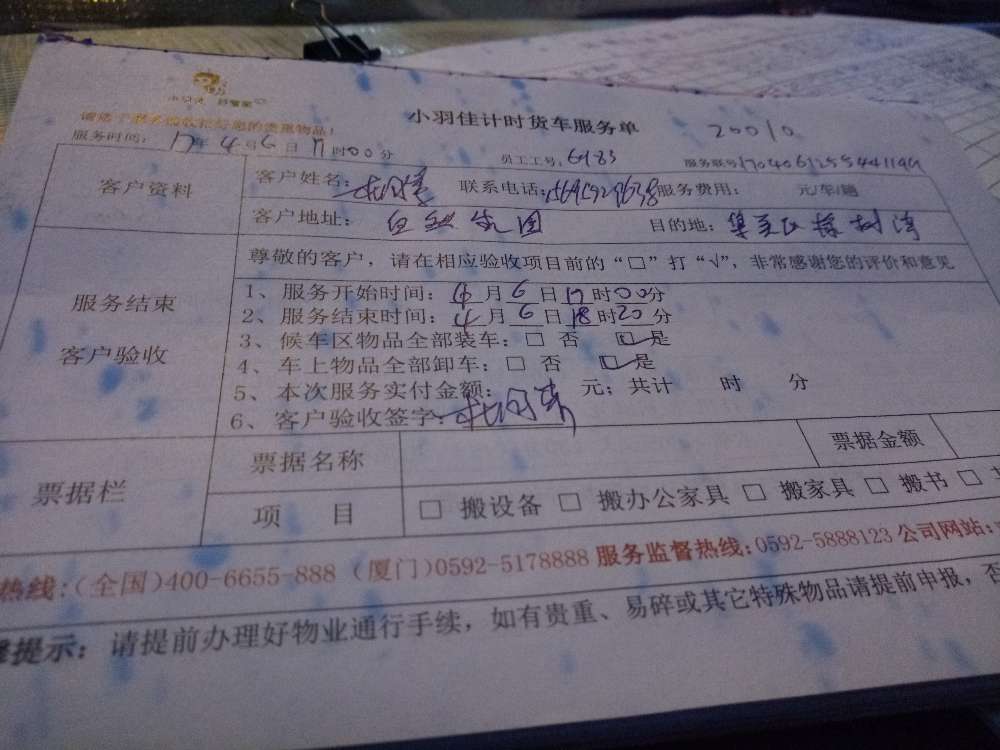 小羽佳计时货车服务单
20010
请清点并收好您的贵重物品!
服务时间: 17年4月6日17时00分
员工工号: 6183
服务联号
客户资料
客户姓名:
联系电话: 服务费用: 元/车/趟
客户地址: 自然家园
目的地: 集美区
服务结束
客户验收
尊敬的客户,请在相应验收项目前的“□”打“√”,非常感谢您的评价和意见
1、服务开始时间: 4月6日17时00分
2、服务结束时间: 4月6日18时20分
3、候车区物品全部装车: □ 否 ☑是
4、车上物品全部卸车: □ 否 ☑是
5、本次服务实付金额: 元; 共计 时 分
6、客户验收签字:
票据栏
票据名称
票据金额
项 目
□ 搬设备 □ 搬办公家具 □ 搬家具 □ 搬书 □
热线:(全国)400-6655-888 (厦门)0592-5178888 服务监督热线:0592-5888123 公司网站:
提示: 请提前办理好物业通行手续, 如有贵重、易碎或其它特殊物品请提前申报, 否